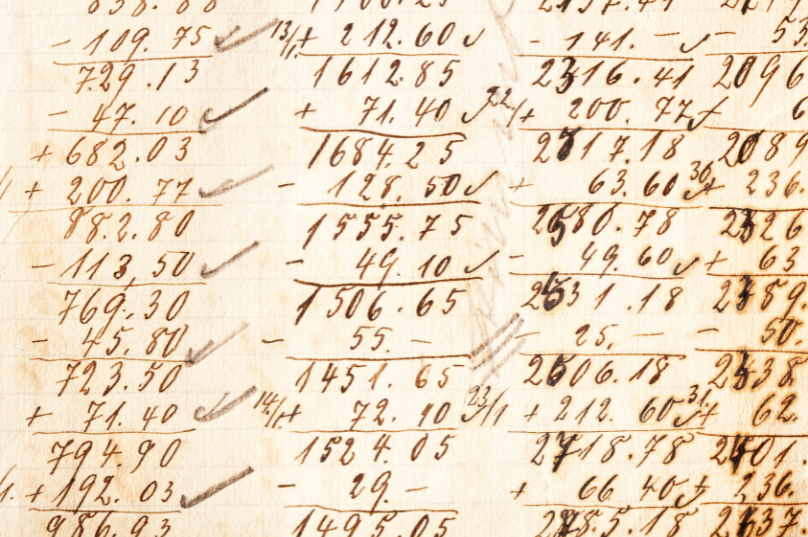 838.88
- 109.75
729.13
- 47.10
+ 682.03
+ 200.77
882.80
- 113,50
769.30
- 45.80
723.50
+ 71.40
794.90
+ 192.03
986.93
13/1. + 212.60
1612.85
+ 71.40
1684.25
- 128.50
1555.75
- 49.10
1506.65
- 55. -
1451.65
14/1 + 72.40
1524.05
- 29. -
1495.05
2457.41
- 141. -
2316.41
22/1 + 200.77
2517.18
+ 63.60
2580.78
- 49.60
2531.18
- 25. -
2506.18
23/1 + 212.60
2718.78
+ 66.40
2785.18
- 53
2096
2089
30 + 236.
2326
+ 63
2389
- 50.
2338
31. + 62.
2401.
+ 236.
2637.